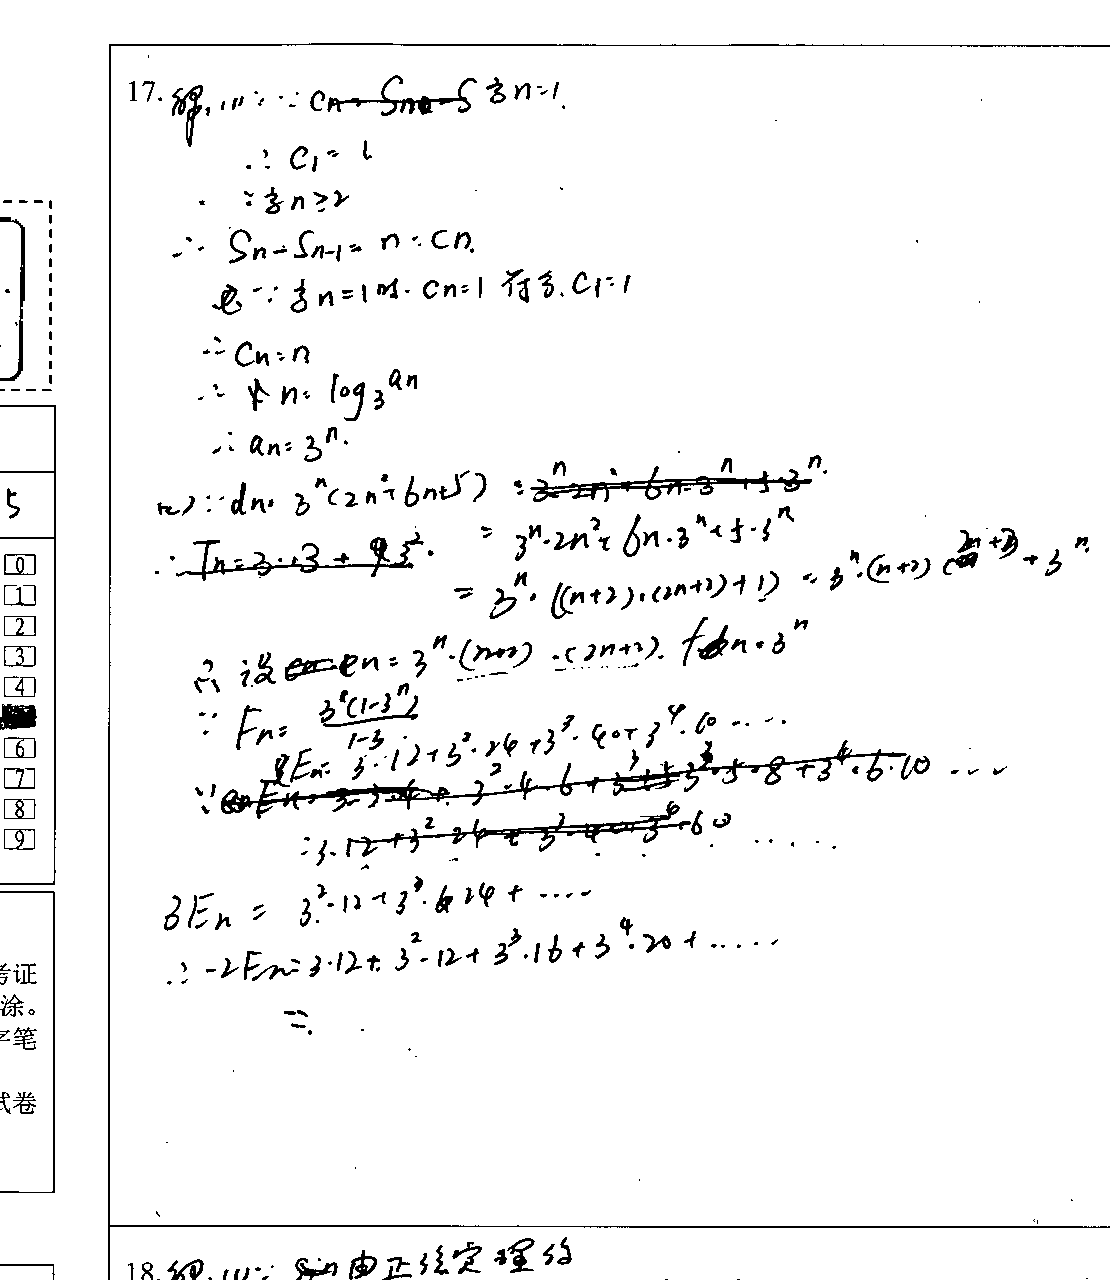 17. 解:(1)∵ 当n=1.
∴ C1 = 1
∵ 当n≥2
∴ Sn-Sn-1= n = Cn.
∵ 当n=1时. Cn=1 符合. C1=1
∴ Cn=n
∴ n= log3an
∴ an= 3^n.
(2)∵ dn= 3^n(2n²+6n+5)
= 3^n·2n²+6n·3^n+5·3^n
= 3^n·((n+2)·(2n+2)+1) = 3^n·(n+2)(2n+2)+3^n.
∴ 设en= 3^n·(n+2)·(2n+2). fn=3^n
∵ Fn= 3(1-3^n)/1-3
En= 3·12+3²·24+3³·40+3^4·60 .....
3En = 3²·12+3³·24+....
∴ -2En=3·12+3²·12+3³·16+3^4·20+.....
=
18. 解:(1)∵ 由正弦定理得
5
0
1
2
3
4
6
7
8
9
考证
涂。
字笔
试卷